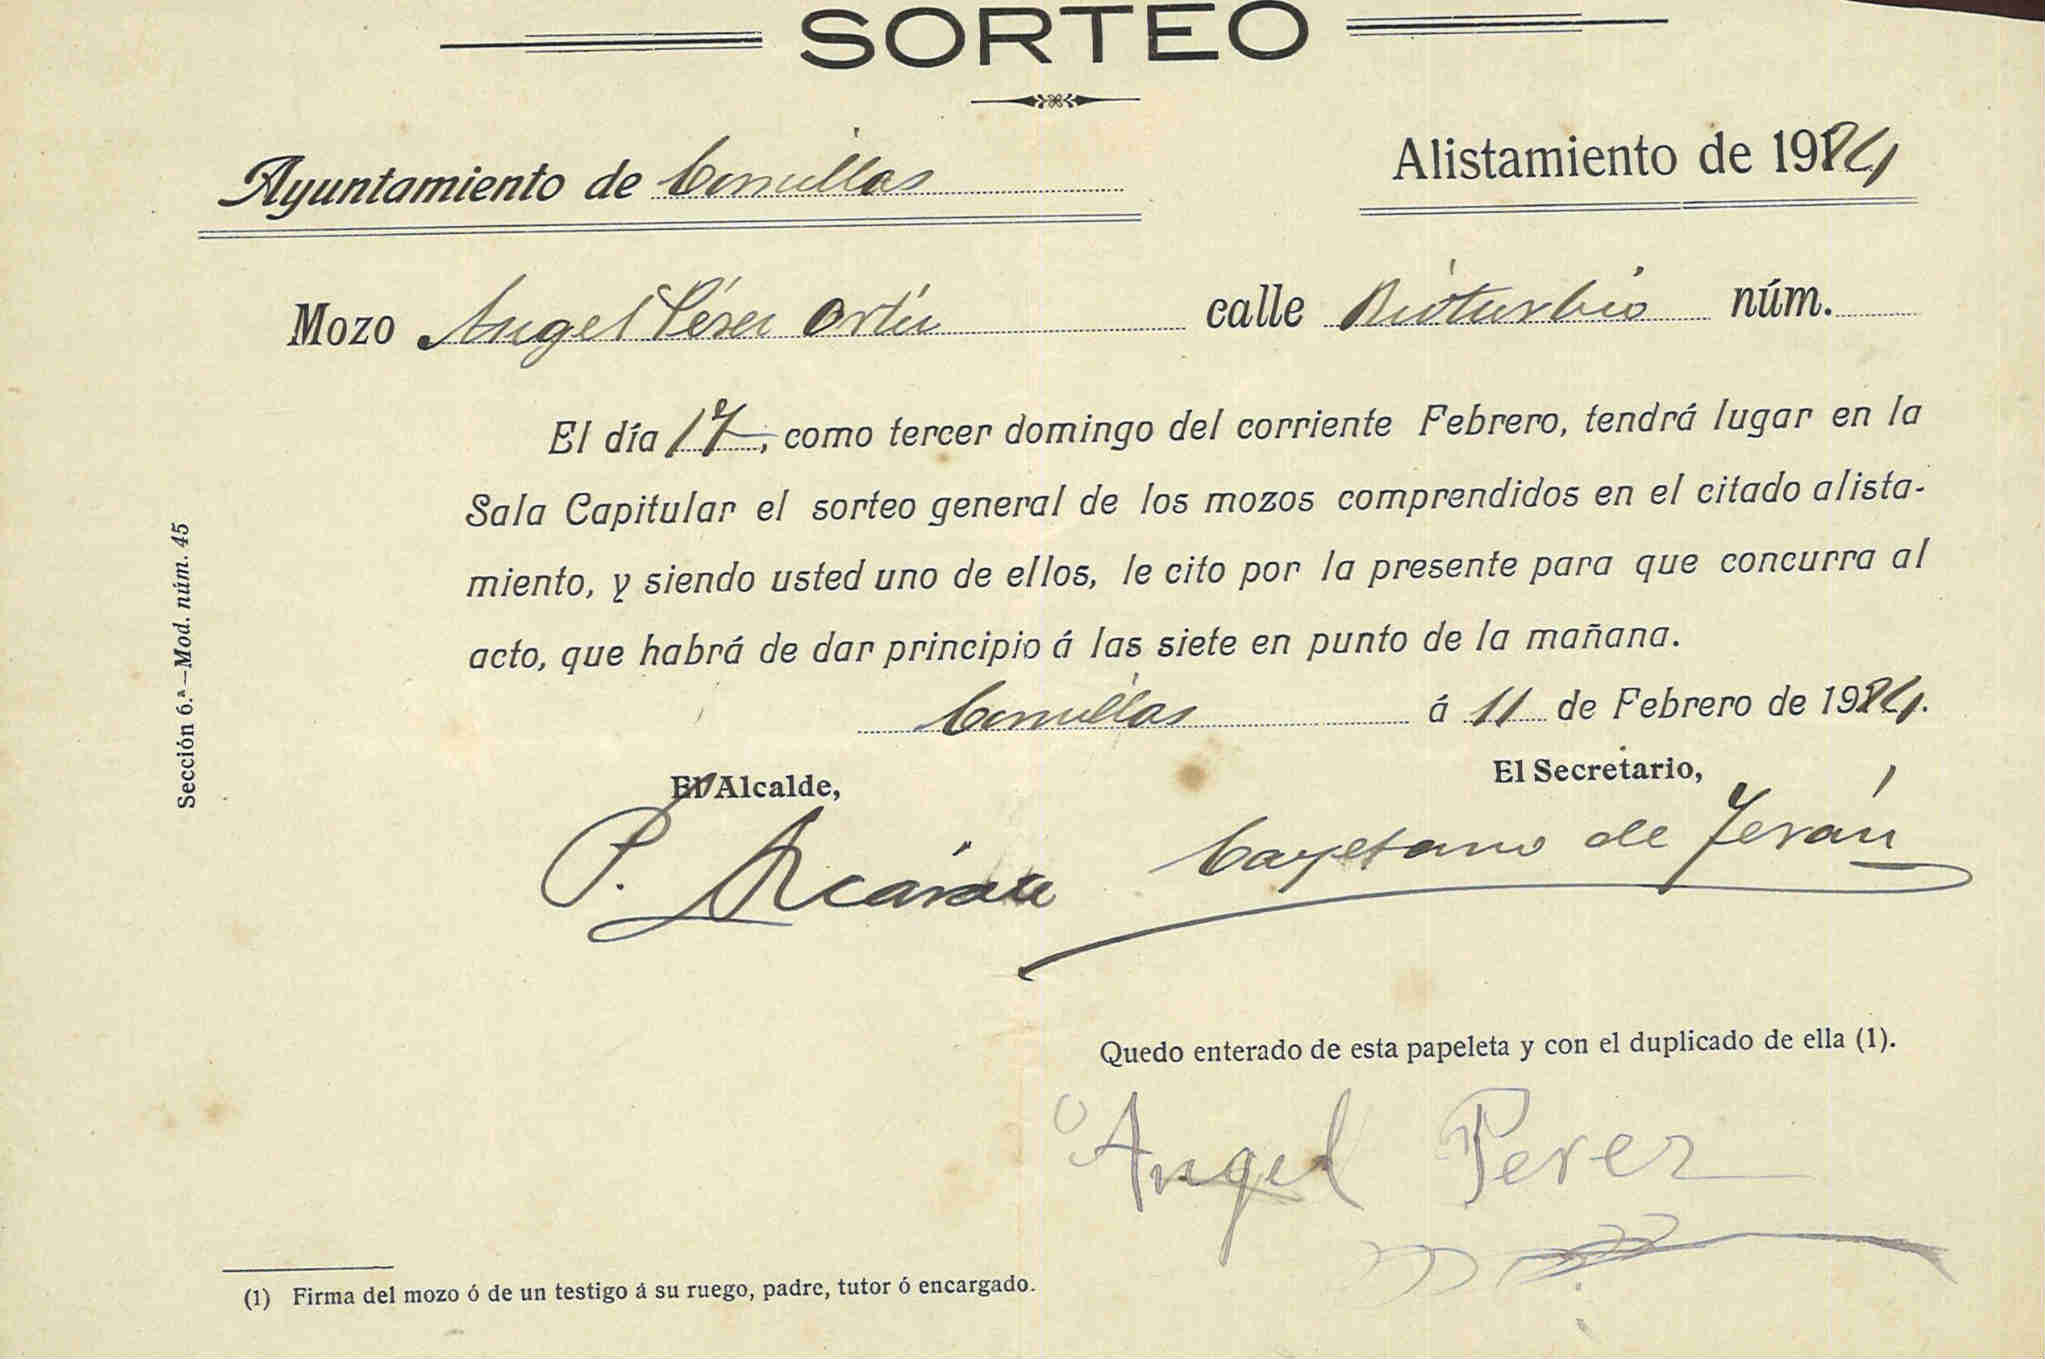 SORTEO
Ayuntamiento de Comillas
Alistamiento de 1924
Mozo Angel Pérez Ortíz calle Rioturbio núm.
El día 17, como tercer domingo del corriente Febrero, tendrá lugar en la
Sala Capitular el sorteo general de los mozos comprendidos en el citado alista-
miento, y siendo usted uno de ellos, le cito por la presente para que concurra al
acto, que habrá de dar principio á las siete en punto de la mañana.
Comillas á 11 de Febrero de 1924.
El Alcalde,
El Secretario,
P.
Cayetano de Terán
Quedo enterado de esta papeleta y con el duplicado de ella (1).
Angel Perez
(1) Firma del mozo ó de un testigo á su ruego, padre, tutor ó encargado.
Sección 6.ª—Mod. núm. 45